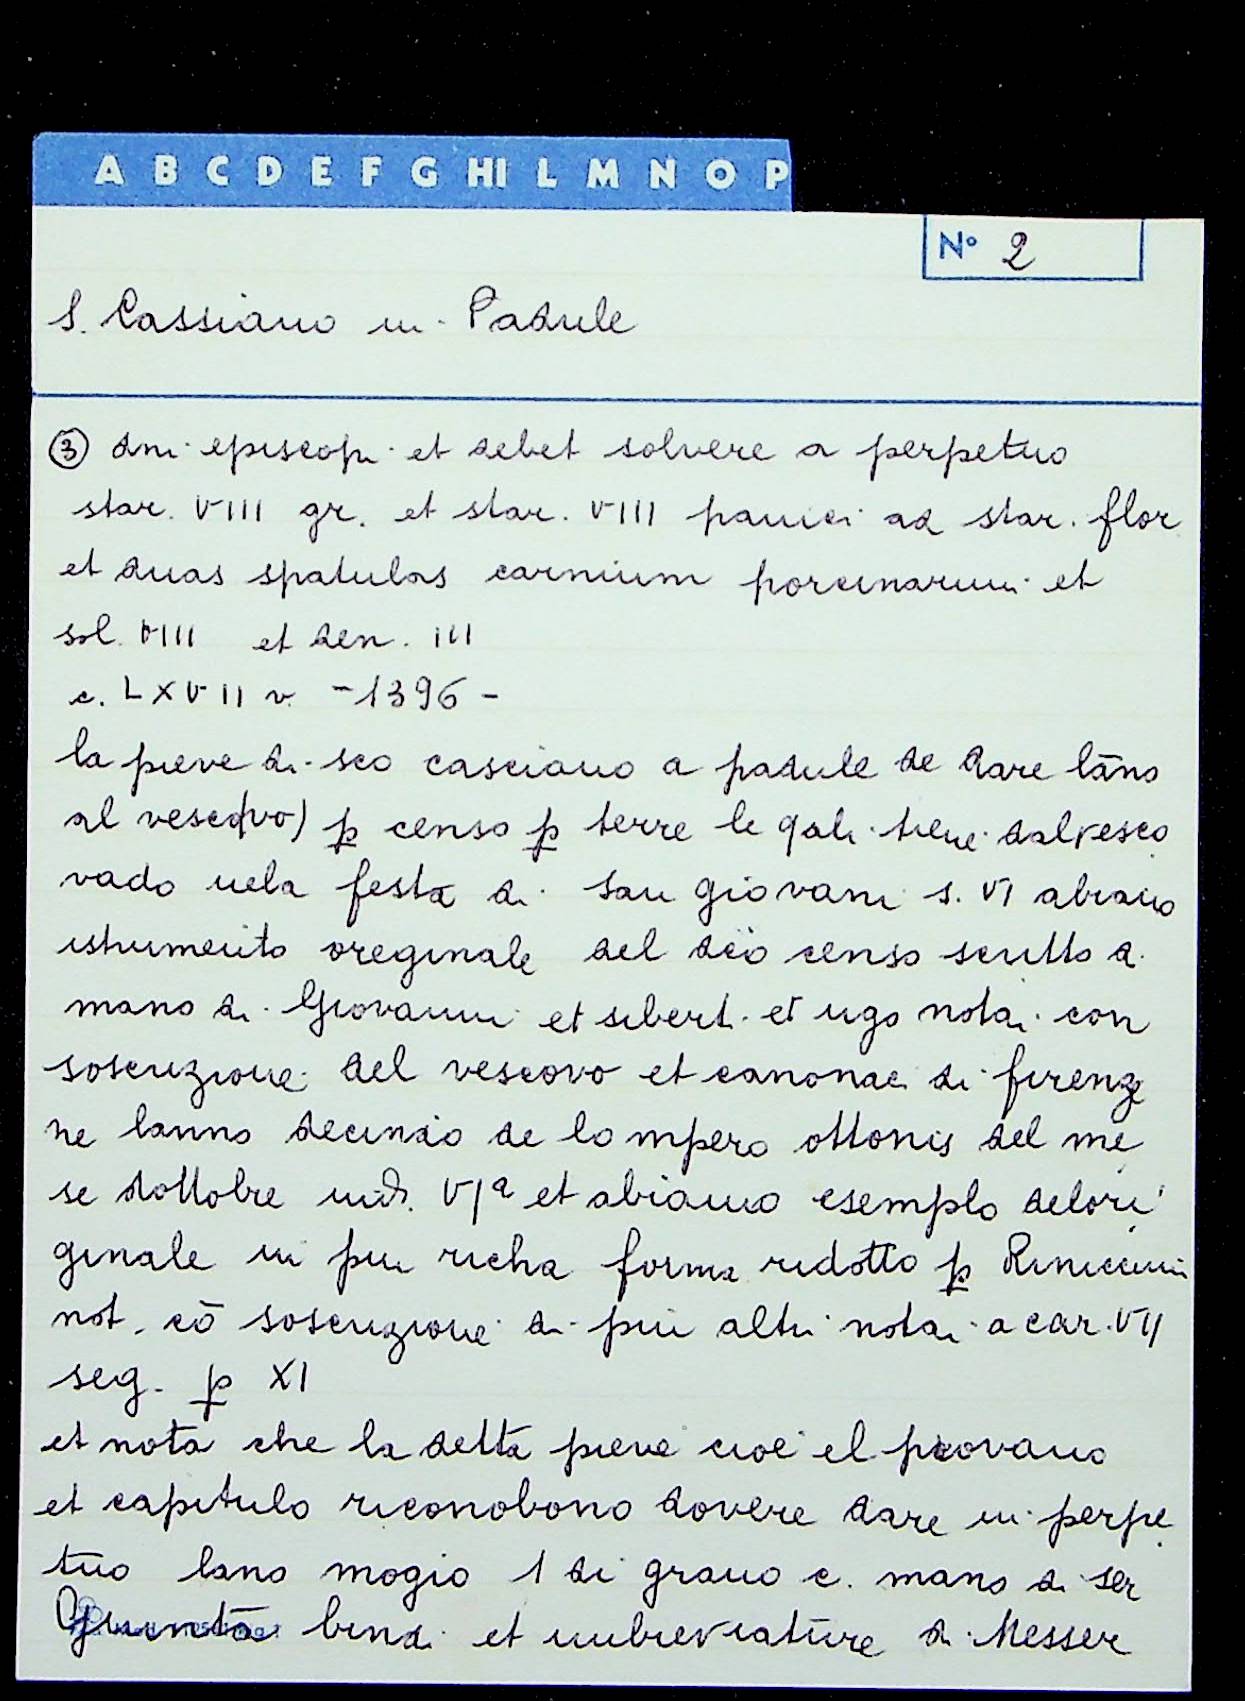 A B C D E F G HI L M N O P
N° 2
S. Cassiano in Padule
③ dni episcopi et debet solvere a perpetuo
star. VIII gr. et star. VIII panici ad star. flor
et duas spatulas carnium porcinarum et
sol. VIII et den. III
c. LXVII v. -1396-
la pieve di sco casciano a padule de dare lāno
al vesco(vo) p̱ censo p̱ terre le quli tiene dalvesco
vado nela festa di San giovani s. VI abiano
istrumento oreginale del dcō censo scritto di
mano di Giovanni et siberti et ugo notai con
soscrizione del vescovo et canonaci di firenze
ne lanno decimo de lo mpero ottonis del me
se dottobre ind. VIª et abiamo esemplo delori
ginale in piu richa forma ridotto p̱ Riniccini
not. cō soscrizione di piu altri notai a car. VII
seg. p̱ XI
et nota che la detta pieve cioe el piovano
et capitulo riconobono dovere dare in perpe
tuo lano mogio 1 di grano c. mano di ser
Giunta bindi et imbreviature di Messer